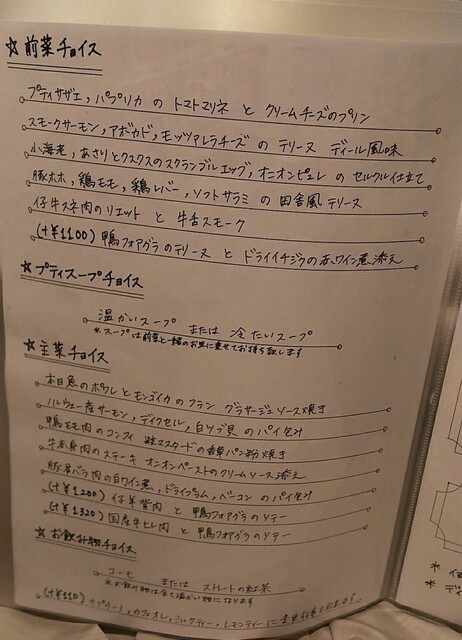 ☆ 前菜チョイス
プティサザエ,パプリカ の トマトマリネ と クリームチーズのプリン
スモークサーモン,アボカド,モッツァレラチーズ の テリーヌ ディール風味
小海老,あさりとクスクスのスクランブルエッグ,オニオンピュレ の セルクル仕立て
豚ホホ,鶏モモ,鶏レバー,ソフトサラミ の 田舎風テリーヌ
仔牛スネ肉のリエット と 牛舌スモーク
(+¥1100) 鴨フォアグラのテリーヌ と ドライイチジクの赤ワイン煮添え
☆ プティスープチョイス
温かいスープ または 冷たいスープ
*スープは前菜と一緒のお皿に乗せてお持ち致します
☆ 主菜チョイス
本日魚のポワレとモンゴイカのフラン グラサージュソース焼き
ノルウェー産サーモン,デュクセル,白ツブ貝 のパイ包み
鴨モモ肉のコンフィ 粒マスタードの香草パン粉焼き
牛赤身肉のステーキ オニオンペーストのクリームソース添え
豚肩バラ肉の白ワイン煮,ドライプラム,ベーコン のパイ包み
(+¥1200) 仔羊背肉 と 鴨フォアグラのソテー
(+¥1320) 国産牛ヒレ肉 と 鴨フォアグラのソテー
☆ お飲み物チョイス
コーヒー または ストレートの紅茶
*お飲み物は全て温かい物になります
(+¥110) カプチーノ,カフェオレ,ミルクティー,レモンティーに変更出来ます
* イ
* デ